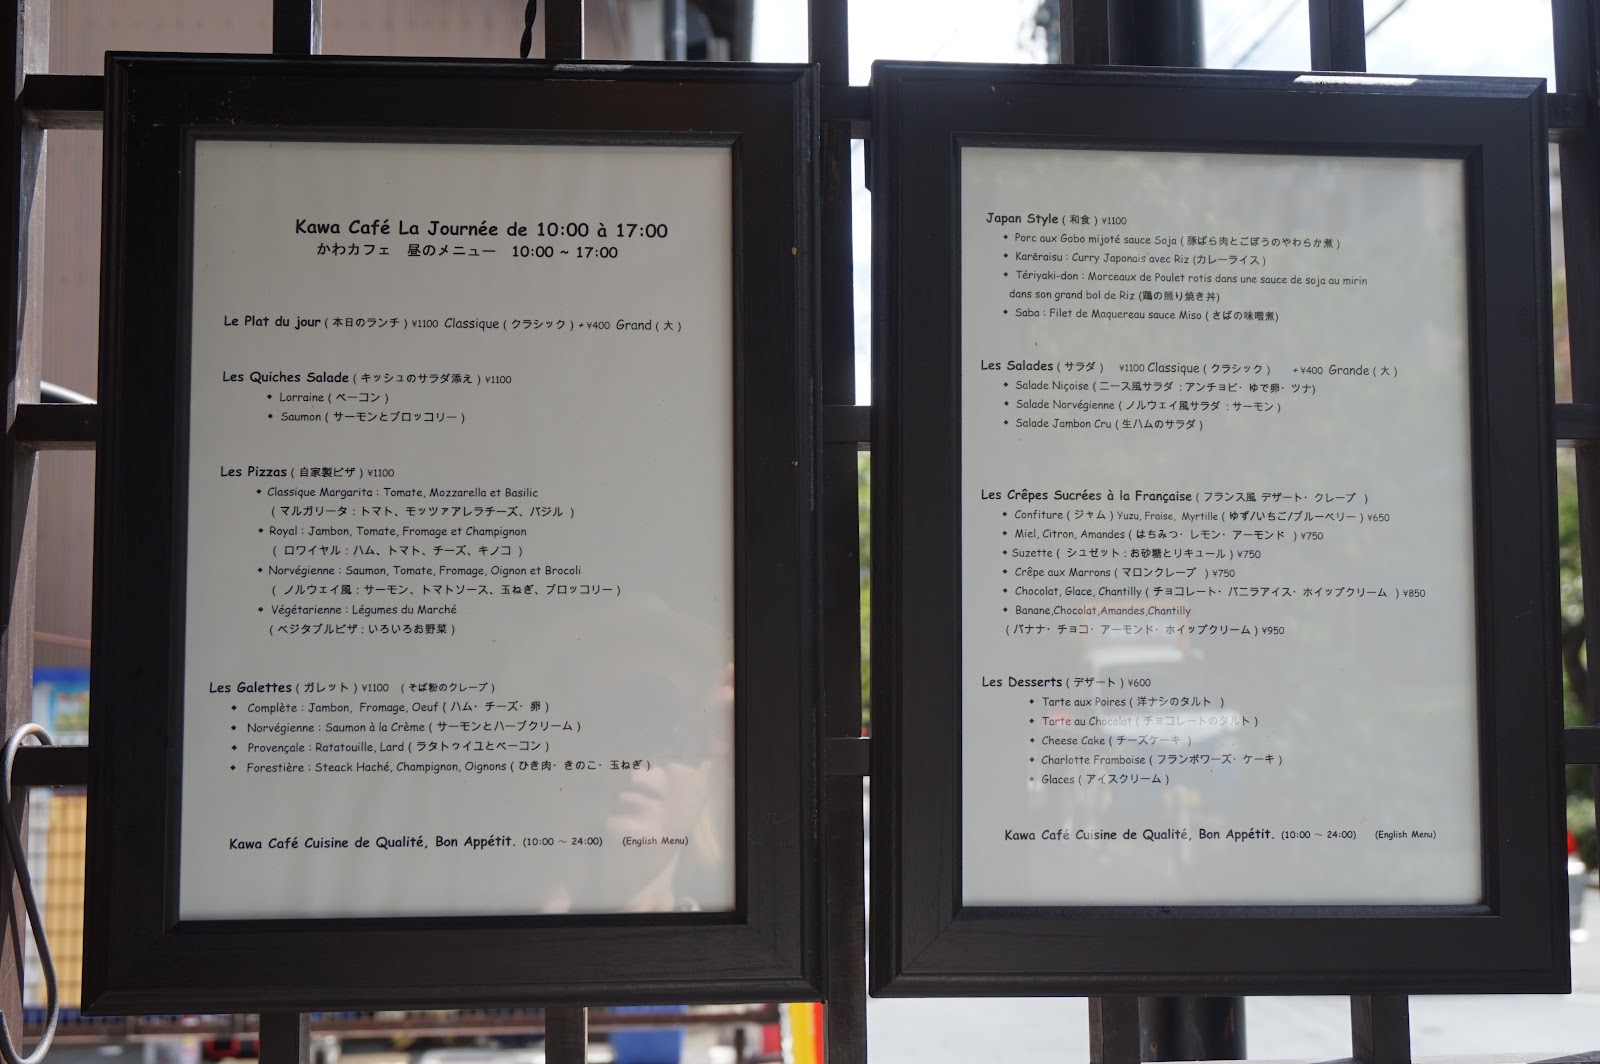 Kawa Café La Journée de 10:00 à 17:00
かわカフェ 昼のメニュー 10:00 ~ 17:00
Le Plat du jour ( 本日のランチ ) ¥1100 Classique ( クラシック ) + ¥400 Grand ( 大 )
Les Quiches Salade ( キッシュのサラダ添え ) ¥1100
◆ Lorraine ( ベーコン )
◆ Saumon ( サーモンとブロッコリー )
Les Pizzas ( 自家製ピザ ) ¥1100
◆ Classique Margarita : Tomate, Mozzarella et Basilic
( マルガリータ : トマト、モッツァアレラチーズ、バジル )
◆ Royal : Jambon, Tomate, Fromage et Champignon
( ロワイヤル : ハム、トマト、チーズ、キノコ )
◆ Norvégienne : Saumon, Tomate, Fromage, Oignon et Brocoli
( ノルウェイ風 : サーモン、トマトソース、玉ねぎ、ブロッコリー )
◆ Végétarienne : Légumes du Marché
( ベジタブルピザ : いろいろお野菜 )
Les Galettes ( ガレット ) ¥1100 ( そば粉のクレープ )
◆ Complète : Jambon, Fromage, Oeuf ( ハム・チーズ・卵 )
◆ Norvégienne : Saumon à la Crème ( サーモンとハーブクリーム )
◆ Provençale : Ratatouille, Lard ( ラタトゥイユとベーコン )
◆ Forestière : Steack Haché, Champignon, Oignons ( ひき肉・きのこ・玉ねぎ )
Kawa Café Cuisine de Qualité, Bon Appétit. (10:00 ~ 24:00) (English Menu)
Japan Style ( 和食 ) ¥1100
◆ Porc aux Gobo mijoté sauce Soja ( 豚ばら肉とごぼうのやわらか煮 )
◆ Karëraisu : Curry Japonais avec Riz (カレーライス )
◆ Tériyaki-don : Morceaux de Poulet rotis dans une sauce de soja au mirin
dans son grand bol de Riz (鶏の照り焼き丼)
◆ Saba : Filet de Maquereau sauce Miso ( さばの味噌煮)
Les Salades ( サラダ ) ¥1100 Classique ( クラシック ) + ¥400 Grande ( 大 )
◆ Salade Niçoise ( ニース風サラダ : アンチョビ・ゆで卵・ツナ)
◆ Salade Norvégienne ( ノルウェイ風サラダ : サーモン )
◆ Salade Jambon Cru ( 生ハムのサラダ )
Les Crêpes Sucrées à la Française ( フランス風 デザート・クレープ )
◆ Confiture ( ジャム ) Yuzu, Fraise, Myrtille ( ゆず/いちご/ブルーベリー ) ¥650
◆ Miel, Citron, Amandes ( はちみつ・レモン・アーモンド ) ¥750
◆ Suzette ( シュゼット : お砂糖とリキュール ) ¥750
◆ Crêpe aux Marrons ( マロンクレープ ) ¥750
◆ Chocolat, Glace, Chantilly ( チョコレート・バニラアイス・ホイップクリーム ) ¥850
◆ Banane,Chocolat,Amandes,Chantilly
( バナナ・チョコ・アーモンド・ホイップクリーム ) ¥950
Les Desserts ( デザート ) ¥600
◆ Tarte aux Poires ( 洋ナシのタルト )
◆ Tarte au Chocolat ( チョコレートのタルト )
◆ Cheese Cake ( チーズケーキ )
◆ Charlotte Framboise ( フランボワーズ・ケーキ )
◆ Glaces ( アイスクリーム )
Kawa Café Cuisine de Qualité, Bon Appétit. (10:00 ~ 24:00) (English Menu)